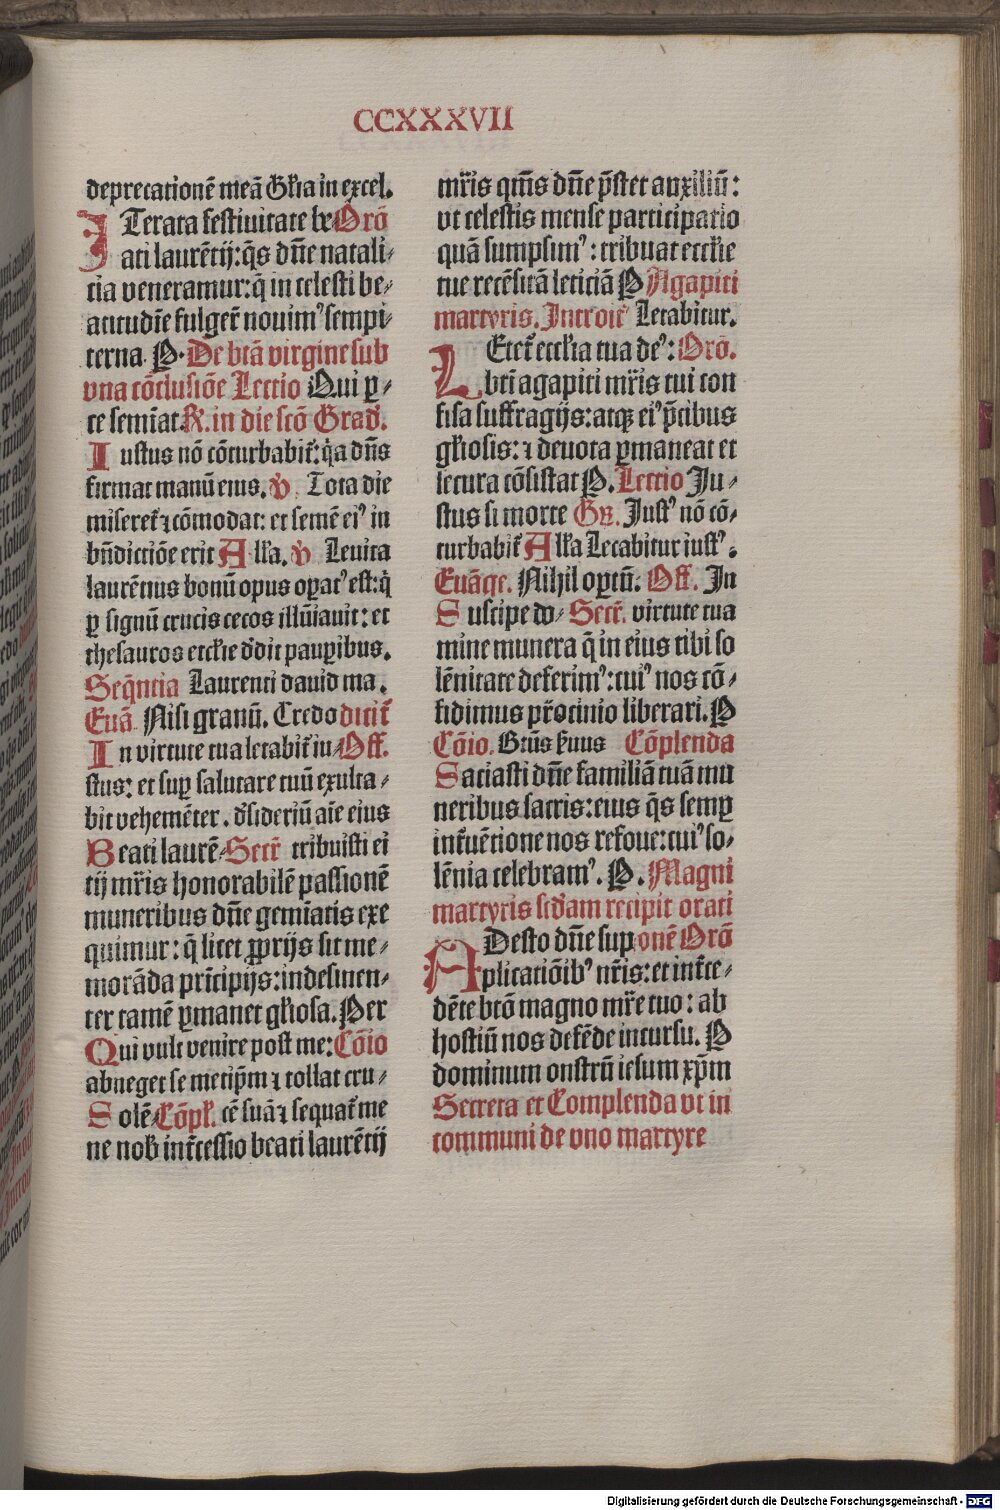 CCXXXVII
deprecationē meā Gl'ia in excel.
ITerata festiuitate be Orō
ati laurētij: q̄s dn̄e natali⸗
cia veneramur: q̄ in celesti be⸗
atitudīe fulget̄ nouimꝰ sempi⸗
terna P. De btā virgine sub
vna cōclusiōe Lectio Qui p̱⸗
ce semīat R. in die scō Grad'.
Iustus nō cōturbabit̄: q̄a dn̄s
firmat manū eius. v Tota die
miseret̄ ⁊ cōmodat: et semē eiꝰ in
bn̄dictiōe erit All'a. v Leuita
laurētius bonū opus op̱atꝰ est: q̄
p̱ signū crucis cecos illūiauit: et
thesauros eccl'ie d'dit paup̱ibus.
Seq̄ntia Laurenti dauid ma.
Euā Nisi granū. Credo dicit̄
In virtute tua letabit̄ iu⸗ Off.
stus: et sup̱ salutare tuū exulta⸗
bit vehemēter. d'sideriū aīe eius
Beati laurē⸗ Secr̄ tribuisti ei
tij mr̄is honorabilē passionē
muneribus dn̄e gemīatis exe
quimur: q̄ licet ꝓprijs sit me⸗
morāda prīcipijs: indesinen⸗
ter tamē p̱manet gl'iosa. Per
Qui vult venire post me: Cōio
abneget se metip̄m ⁊ tollat cru⸗
Solē⸗ Cōpl'. cē suā ⁊ sequat̄ me
ne nob' int̄cessio beati laurētij
mr̄is qm̄s dn̄e p̄stet auxiliū:
vt celestis mense participatio
quā sumpsimꝰ: tribuat eccl'ie
tue recēsitā leticiā P Agapiti
martyris. Introitꝰ Letabitur.
LEtet̄ eccl'ia tua deꝰ: Orō.
bt̄i agapiti mr̄is tui con
fisa suffragijs: atqꝫ eiꝰ p̄cibus
gl'iosis: ⁊ deuota p̱maneat et
secura cōsistat P. Lectio Ju⸗
stus si morte Gr̄. Justꝰ nō cō⸗
turbabit̄ All'a Letabitur iustꝰ.
Euāge. Nihil op̱tū. Off. In
Suscipe do⸗ Secr̄. virtute tua
mine munera q̄ in eius tibi so
lēnitate deferimꝰ: cuiꝰ nos cō⸗
fidimus pr̄ocinio liberari. P
Cōio. Btūs s'uus Cōplenda
Saciasti dn̄e familiā tuā mu
neribus sacris: eius q̄s semp̱
int̄uētione nos refoue: cuiꝰ so⸗
lēnia celebramꝰ. P. Magni
martyris sc'dam recipit orati
ADesto dn̄e sup onē Orō
plicatiōibꝰ nr̄is: et int̄ce⸗
dēte btō magno mr̄e tuo: ab
hostiū nos defēde incursu. P
dominum onstrū iesum xp̄m
Secreta et Complenda vt in
communi de vno martyre
Digitalisierung gefördert durch die Deutsche Forschungsgemeinschaft - DFG